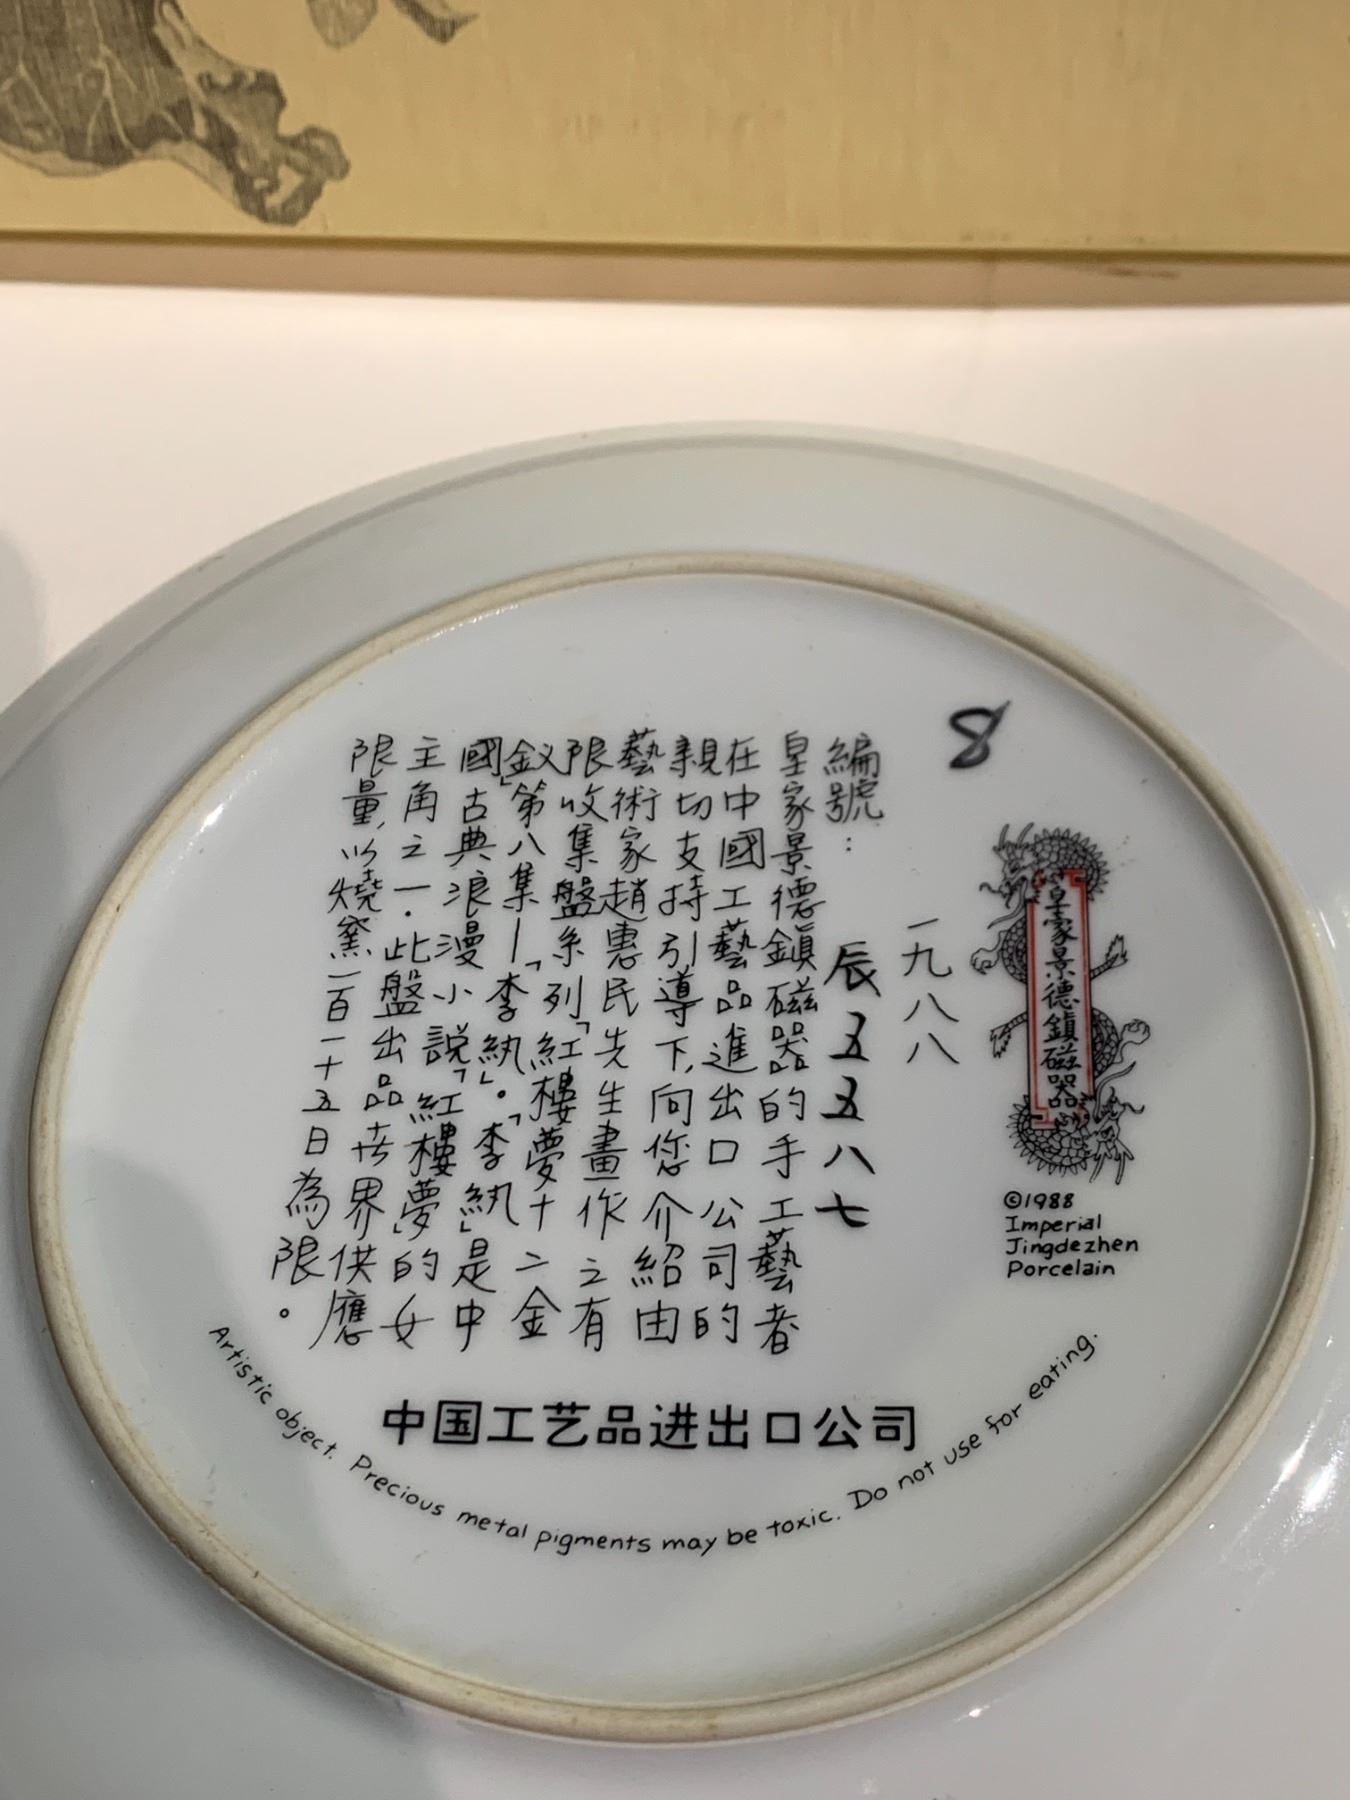 8
皇家景德鎮磁器
©1988
Imperial
Jingdezhen
Porcelain
一九八八
編號：辰五五八七
皇家景德鎮磁器的手工藝者
在中國工藝品進出口公司的
親切支持引導下,向您介紹由
藝術家趙惠民先生畫作之有
限收集盤系列「紅樓夢十二金
釵」第八集—「李紈」。「李紈」是中
國古典浪漫小說「紅樓夢」的女
主角之一.此盤出品世界供應
限量,以燒窯一百一十五日為限。
中国工艺品进出口公司
Artistic object. Precious metal pigments may be toxic. Do not use for eating.